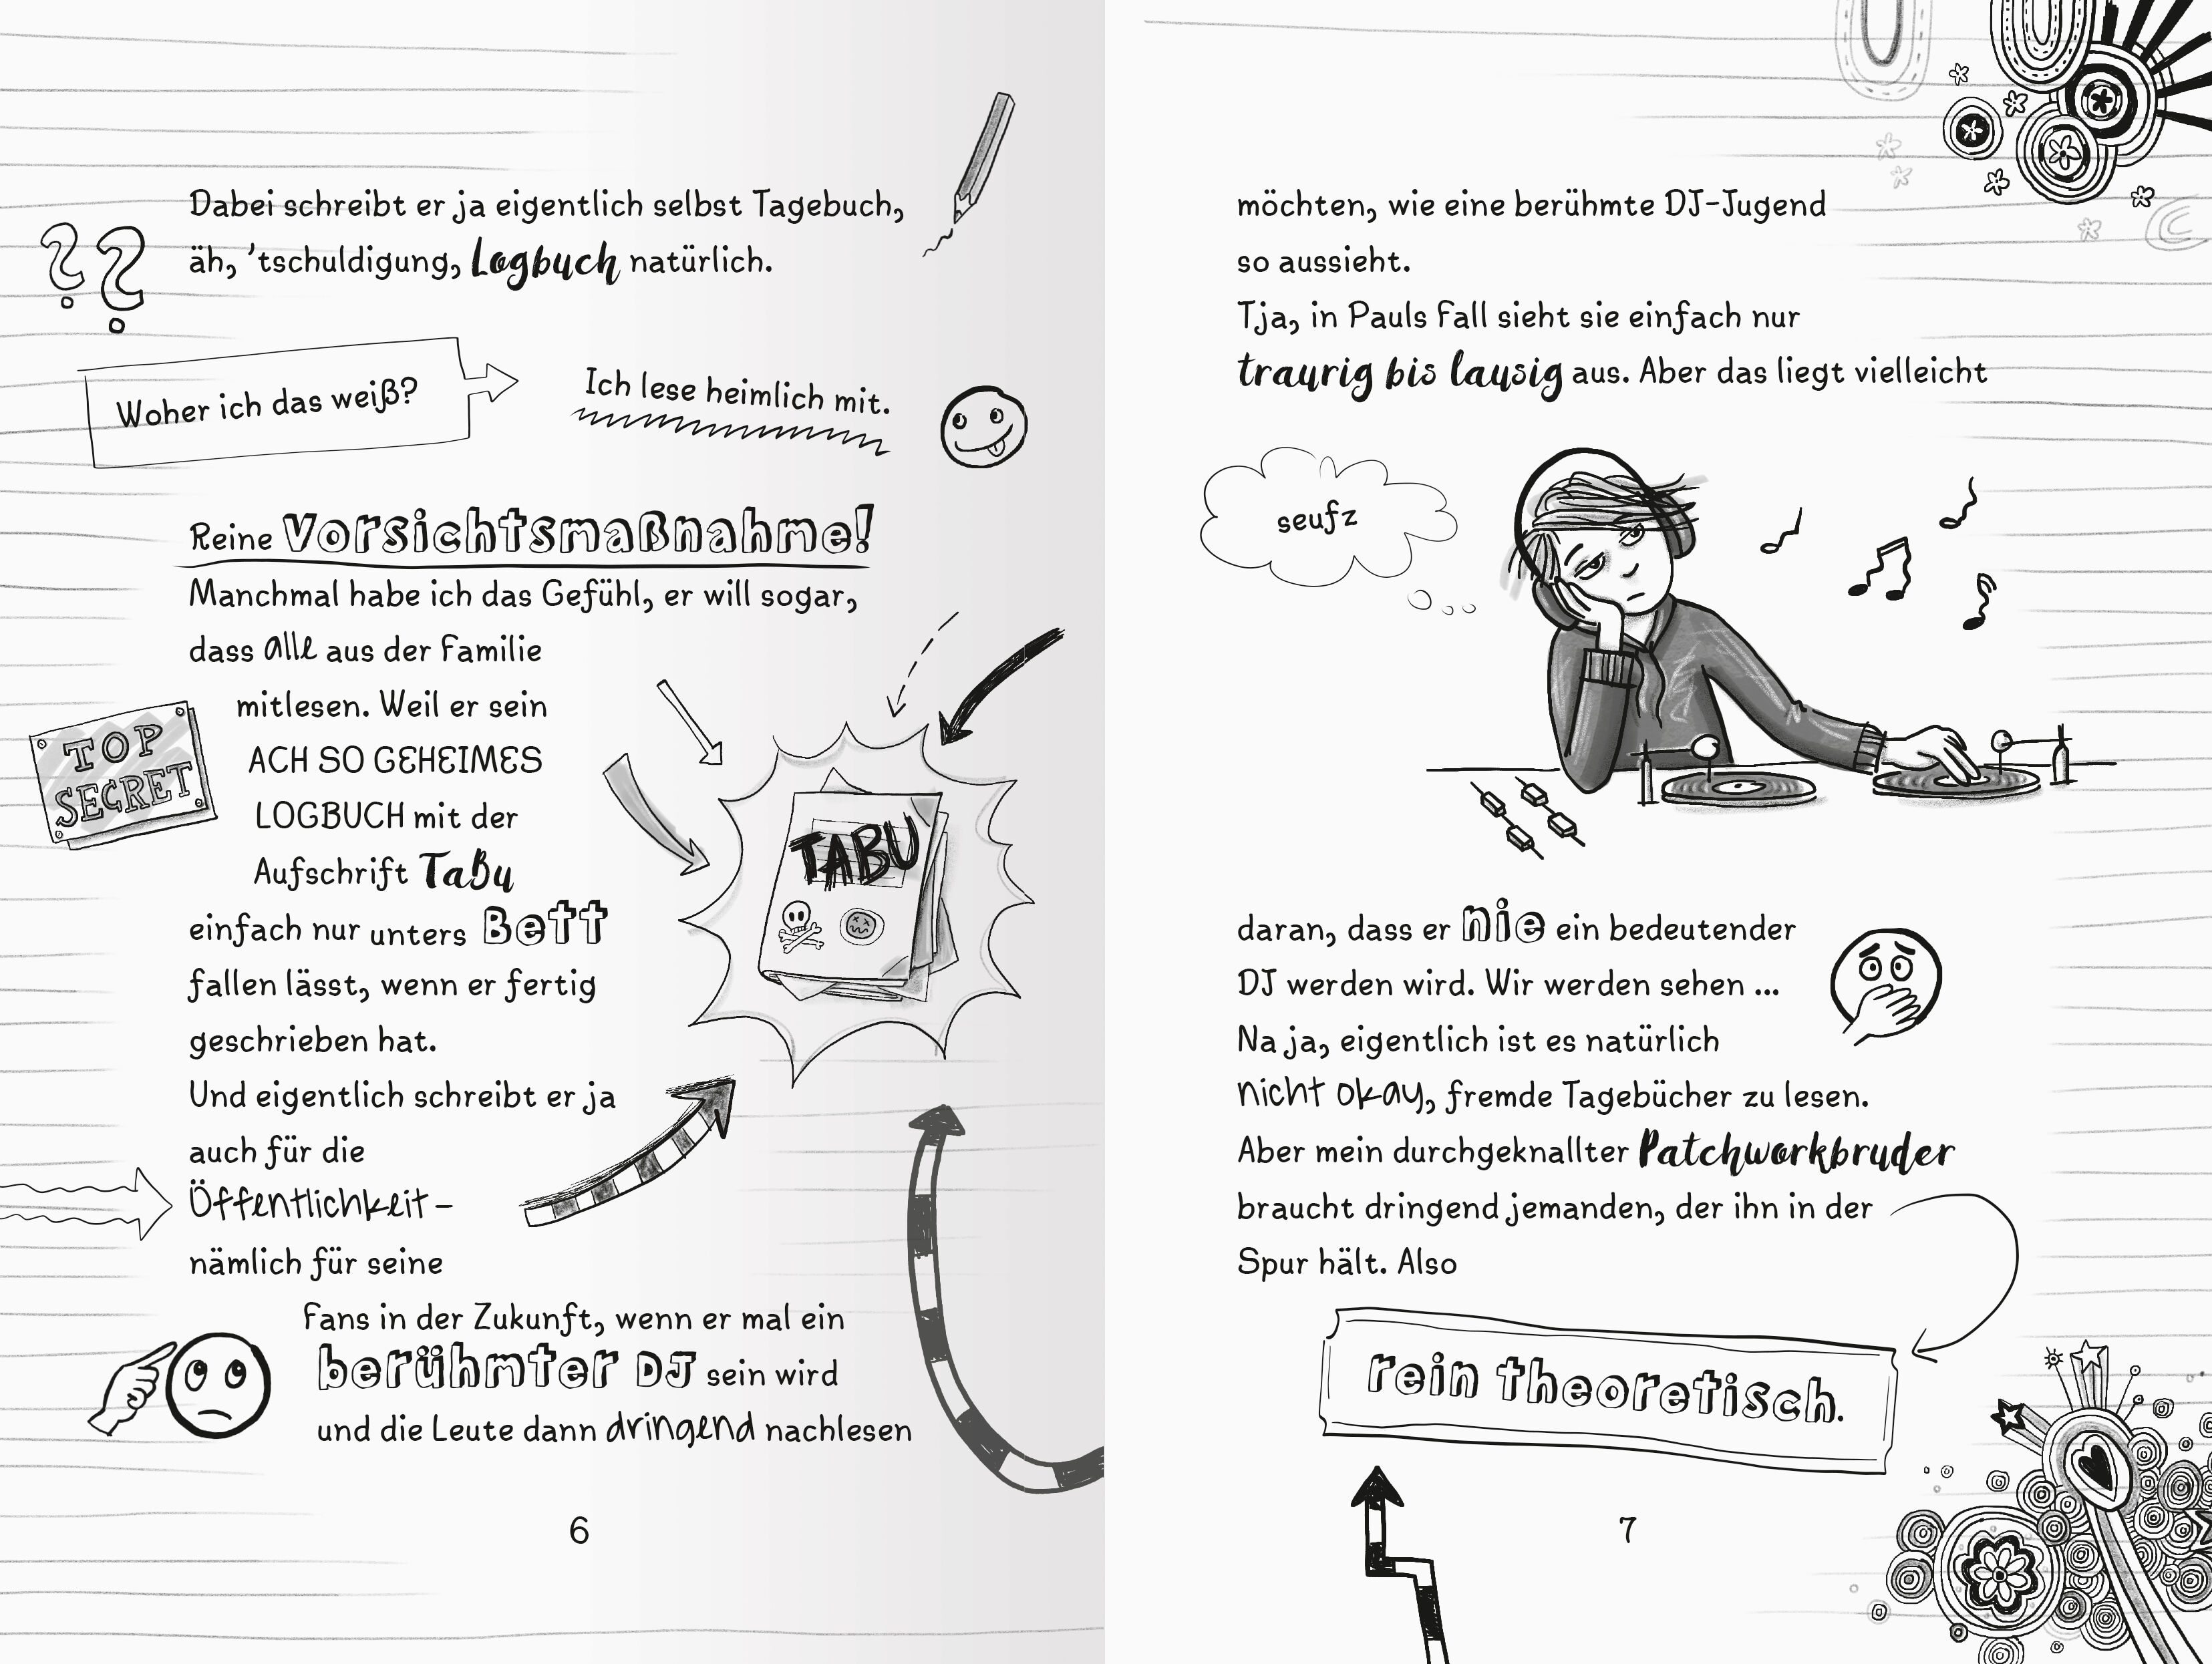 Dabei schreibt er ja eigentlich selbst Tagebuch,
äh, 'tschuldigung, Logbuch natürlich.
??
Woher ich das weiß?
Ich lese heimlich mit.
Reine Vorsichtsmaßnahme!
Manchmal habe ich das Gefühl, er will sogar,
dass alle aus der Familie
mitlesen. Weil er sein
ACH SO GEHEIMES
LOGBUCH mit der
Aufschrift TaBu
einfach nur unters Bett
fallen lässt, wenn er fertig
geschrieben hat.
TOP
SECRET
TABU
Und eigentlich schreibt er ja
auch für die
Öffentlichkeit –
nämlich für seine
Fans in der Zukunft, wenn er mal ein
berühmter DJ sein wird
und die Leute dann dringend nachlesen
6
möchten, wie eine berühmte DJ-Jugend
so aussieht.
Tja, in Pauls Fall sieht sie einfach nur
traurig bis lausig aus. Aber das liegt vielleicht
seufz
daran, dass er nie ein bedeutender
DJ werden wird. Wir werden sehen ...
Na ja, eigentlich ist es natürlich
nicht okay, fremde Tagebücher zu lesen.
Aber mein durchgeknallter Patchworkbruder
braucht dringend jemanden, der ihn in der
Spur hält. Also
rein theoretisch.
7